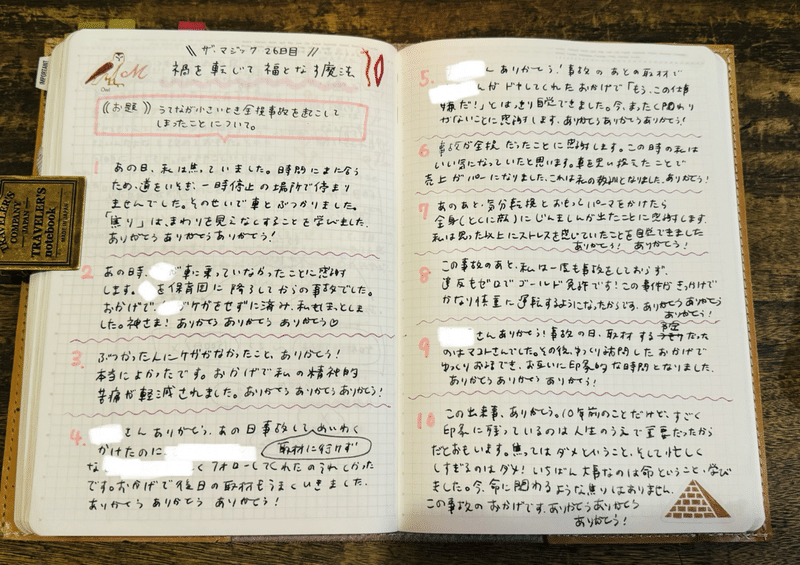 IMPORTANT
\\ ザ・マジック 26日目 //
禍を転じて福となす魔法 10
Owl
M
((お題)) うてなが小さいとき全損事故を起こして
しまったことについて。
TRAVELER'S
COMPANY
TRAVELER'S
notebook
MADE IN JAPAN
1
あの日、私は焦っていました。時間にまに合う
ため、道をいそぎ、一時停止の場所で停まり
ませんでした。そのせいで車とぶつかりました。
「焦り」は、まわりを見えなくすることを学びました。
ありがとう ありがとう ありがとう!
2
あの時、 車に乗っていなかったことに感謝
します。 を保育園に降ろしてからの事故でした。
おかげで、 ケガをせずに済み、私もほっとしま
した。神さま! ありがとう ありがとう ありがとう♡
3.
ぶつかった人にケガがなかったこと、ありがとう!
本当によかったです。おかげで私の精神的
苦痛が軽減されました。ありがとう ありがとう ありがとう!
4.
さんありがとう。あの日事故して、めいわく
かけたのに 取材に行けず
な くフォローしてくれたのうれしかった
です。おかげで後日の取材もうまくいきました。
ありがとう ありがとう ありがとう!
5.
んありがとう!事故のあとの取材で
んがドヤしてくれたおかげで「もう、この仕事
嫌だ!」とはっきり自覚できました。今、まったく関わり
がないことに感謝します。ありがとうありがとうありがとう!
6
事故が全損だったことに感謝します。この時の私は
いい気になっていたと思います。車を買い替えたことで
売上がパーになりました。これは私の教訓となりました。ありがとう!
7
あのあと、気分転換とおもってパーマをかけたら
全身(とくに肢)にじんましんが出たことに感謝します。
私は思った以上にストレスを感じていたことを自覚できました
ありがとう! ありがとう!
8
この事故のあと、私は一度も事故をしておらず、
違反もゼロでゴールド免許です!この事件がきっかけで
かなり慎重に運転するようになったからです。ありがとう ありがとう
ありがとう!
9
さんありがとう!事故の日、取材する予定だった
のはマコトさんでした。その後、ゆっくり訪問したおかげで
ゆっくりお話でき、お互いに印象的な時間となりました。
ありがとう ありがとう ありがとう!
10
この出来事、ありがとう。10年前のことだけど、すごく
印象に残っているのは人生のうえで重要だったから
だとおもいます。焦ってはダメということ、そして忙しく
しすぎるのはダメ!いちばん大事なのは命ということ、学び
ました。今、命に関わるような焦りはありません。
この事故のおかげです。ありがとうありがとう
ありがとう!